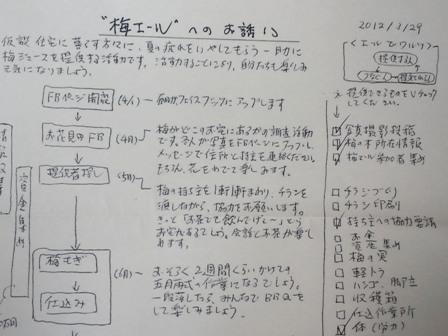 "梅エール" へのお誘い
2012/3/29
仮設住宅に暮す方々に、夏の疲れをいやしてもらう一助に
梅ジュースを提供する活動です。活動することにより、自分たちも楽しみ
元気になりましょう。
<エールでワルツ>
提供する人
つなぐ人
FBページ開設
(4/1)
お花見 FB
(4月)
梅がどこのお宅にあるかの調査活動
です。各人が写真をFBページにアップし
メッセージで住所と持主を連絡ください
もちろん、花をめでて楽しみます。
提供者探し
(5月)
梅の持主を1軒1軒まわり、チラシを
渡しながら、協力をお願いします。
きっと「お茶でも飲んでけ〜」という
お宅もあるでしょう。会話とお茶が楽し
めます。
梅もぎ
(6月)
おそらく2週間くらいかけての
五月雨式の作業になるでしょう。
一段落したら、みんなでBBQをして
楽しみましょう。
仕込み
資金集め
提供できるものをVチェック
してください。
写真撮影投稿
梅の木所在情報
梅エール参加者集め
チラシづくり
チラシ印刷
持主への協力要請
お金
資金集め
梅の実
軽トラ
ハシゴ、脚立
収穫箱
仕込作業所
体(労力)